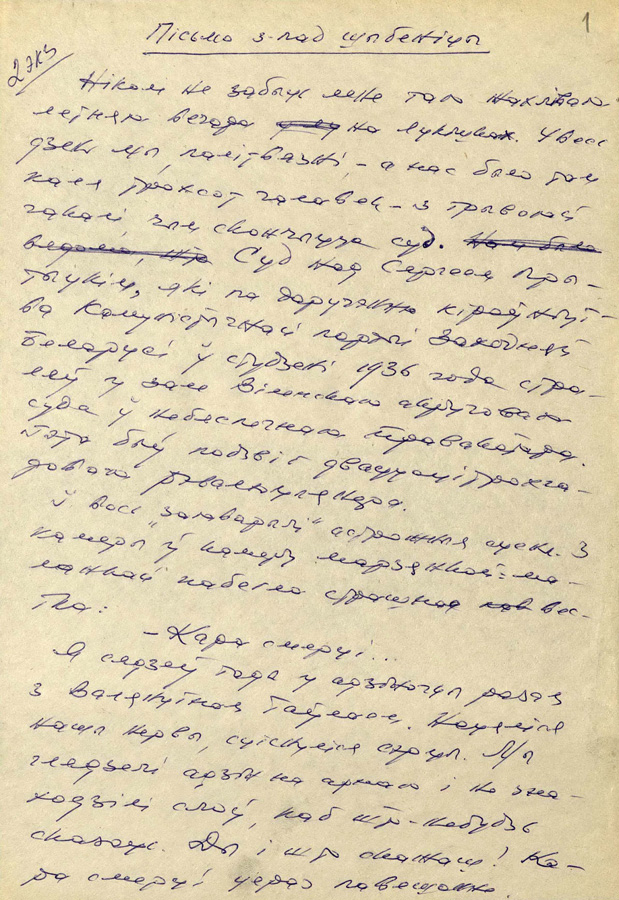 1
Пісьмо з-пад шыбеніцы
2 экз
Ніколі не забыць мне таго жахлівага
летняга вечара на Лукішках. Увесь
дзень мы, палітвязні, – а нас было там
каля трохсот чалавек – з трывогай
чакалі, чым скончыцца суд. Нам было
вядома, што Суд над Сяргеем Пры-
тыцкім, які па даручэнню кіраўніц-
тва Камуністычнай партыі Заходняй
Беларусі ў студзені 1936 года стра-
ляў у зале Віленскага акруговага
суда ў небяспечнага правакатара.
Гэта быў подзвіг дваццацітрохга-
довага рэвалюцыянера.
І вось "загаварылі" астрожныя сцены. З
камеры ў камеру марзянкай: ма-
ланкай пабегла страшная вес-
тка:
– Кара смерці...
Я сядзеў тады ў адзіночцы разам
з Валянцінам Таўлаем. Напяліся
нашы нервы, сціснуліся сэрцы. Мы
глядзелі адзін на аднаго і не зна-
ходзілі слоў, каб што-небудзь
сказаць. Ды і што скажаш! Ка-
ра смерці цераз павешанне.